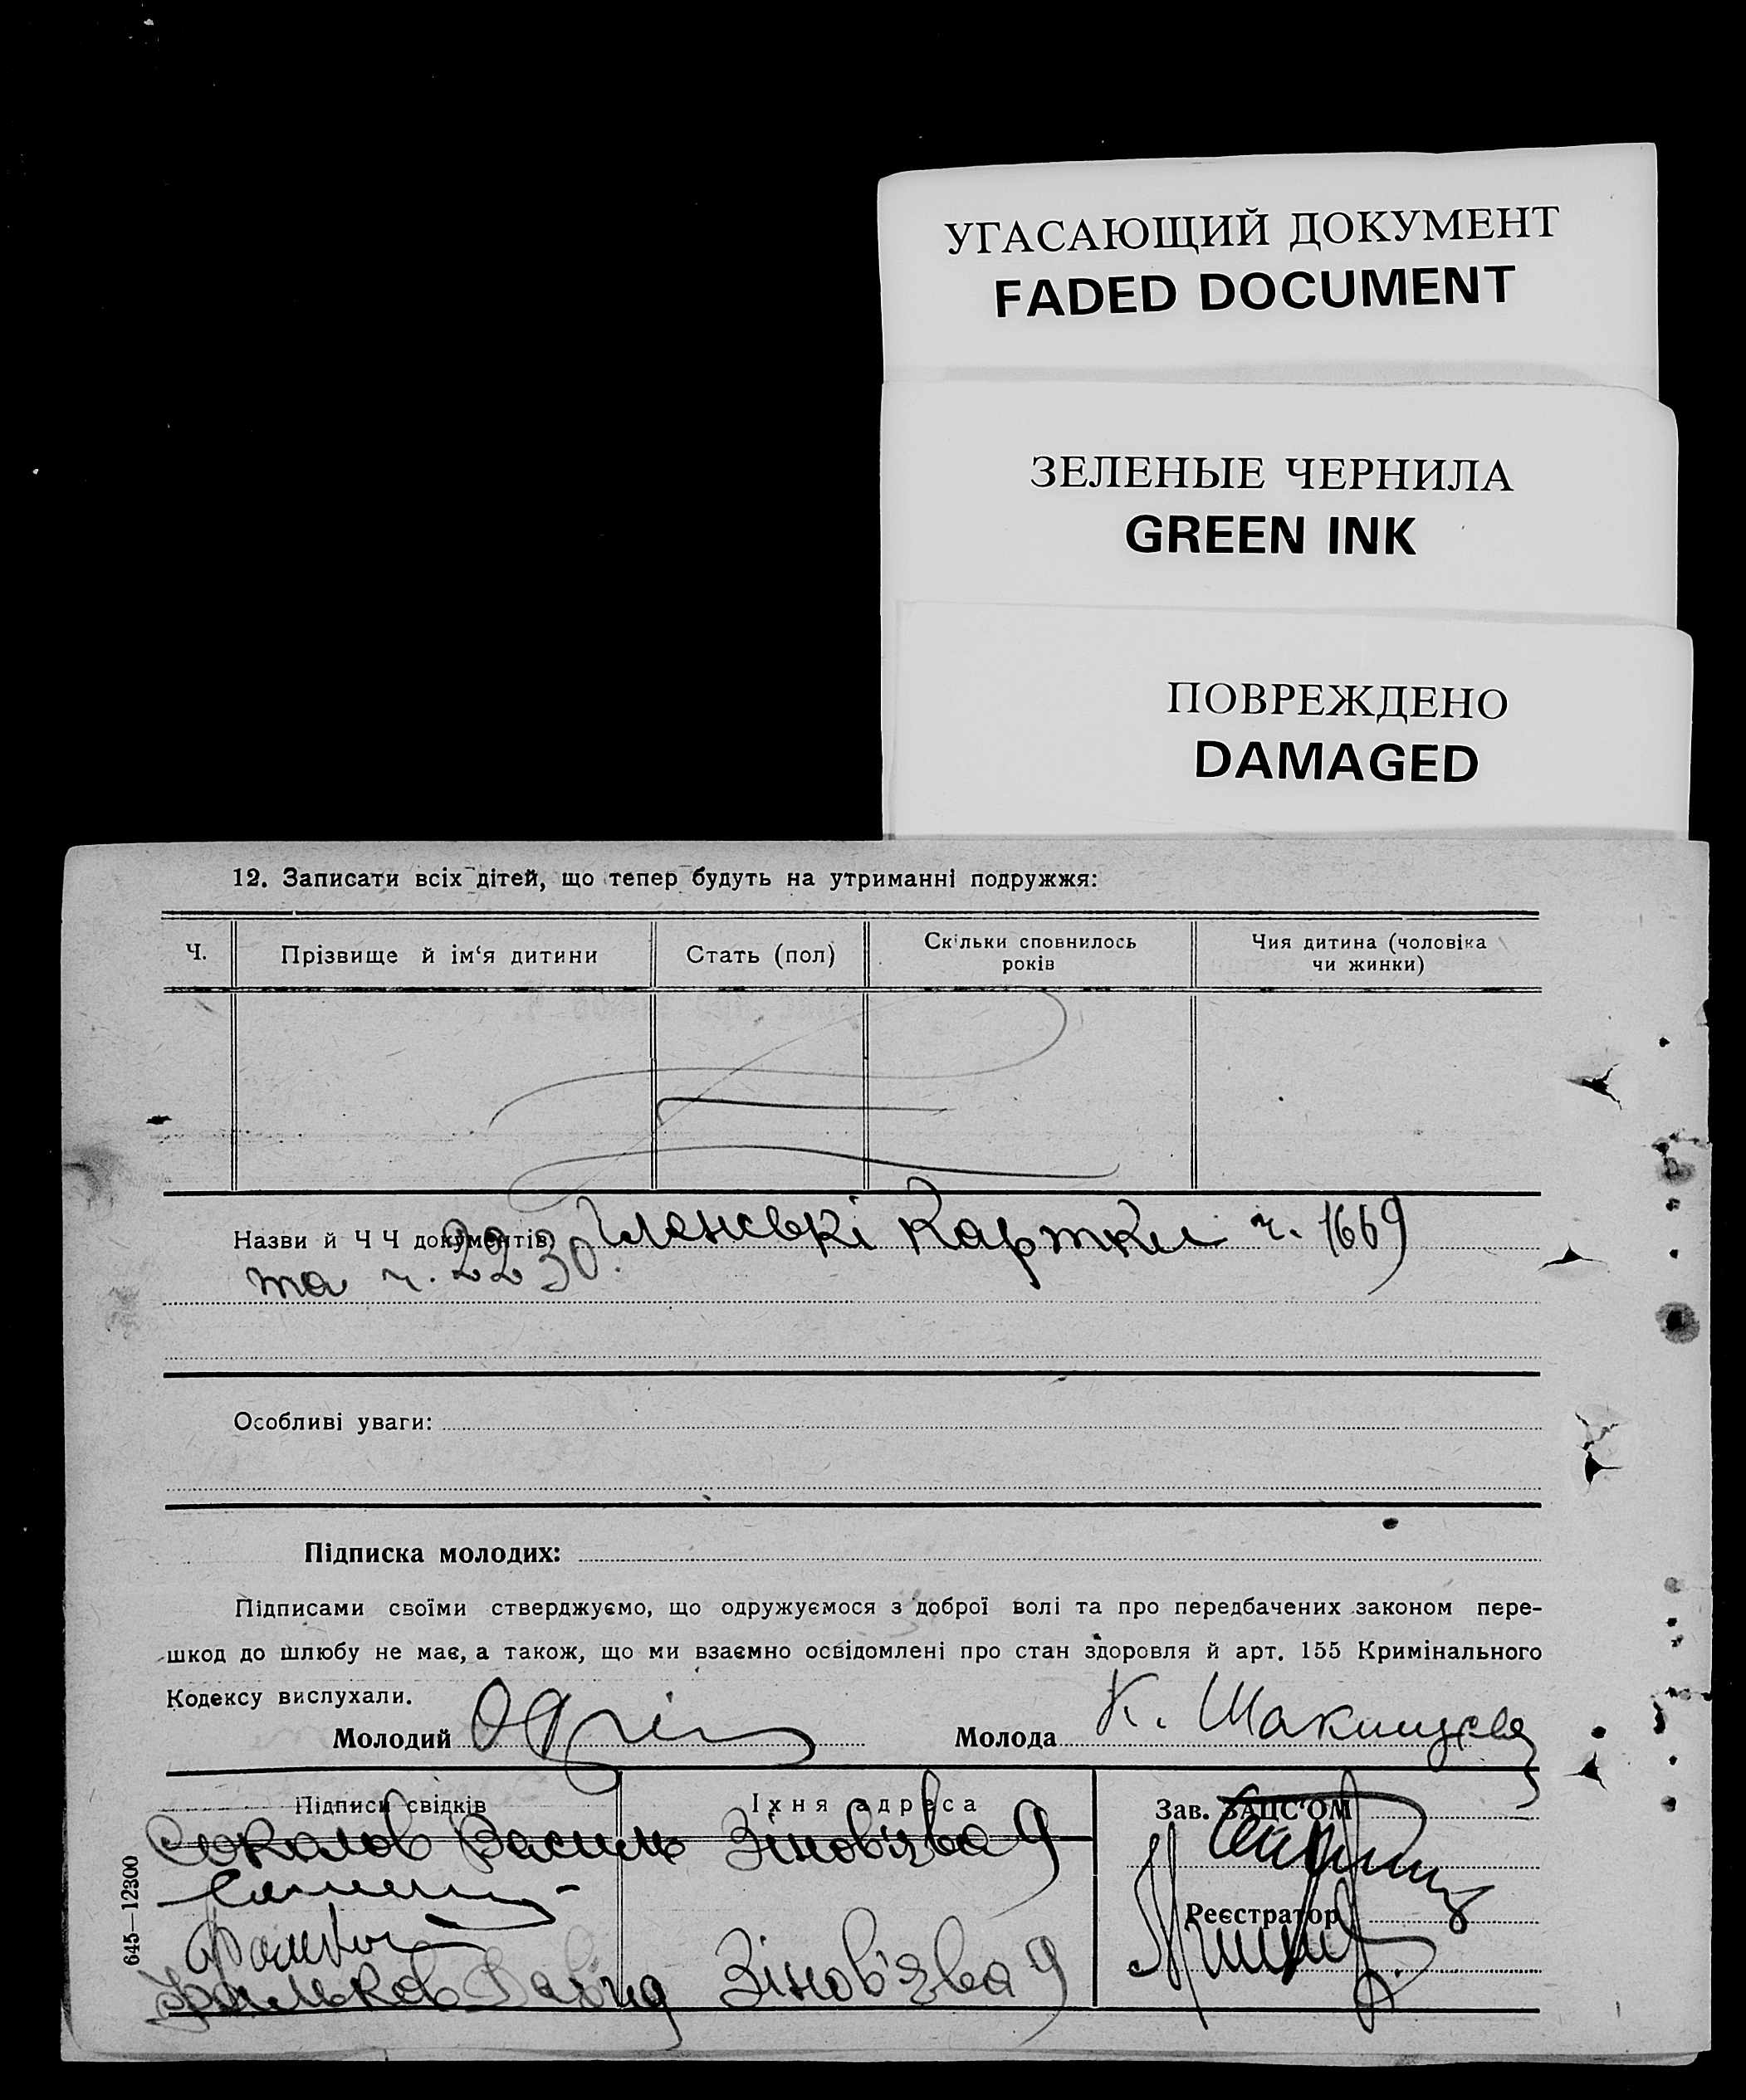 УГАСАЮЩИЙ ДОКУМЕНТ
FADED DOCUMENT
ЗЕЛЕНЫЕ ЧЕРНИЛА
GREEN INK
ПОВРЕЖДЕНО
DAMAGED
12. Записати всіх дітей, що тепер будуть на утриманні подружжя:
Ч.
Прізвище й ім‘я дитини
Стать (пол)
Скільки сповнилось
років
Чия дитина (чоловіка
чи жинки)
Назви й Ч Ч документів Членські картки ч. 1669
та ч. 2230.
Особливі уваги:
Підписка молодих:
Підписами своїми стверджуємо, що одружуємося з доброї волі та про передбачених законом пере-
шкод до шлюбу не має, а також, що ми взаємно освідомлені про стан здоровля й арт. 155 Кримінального
Кодексу вислухали.
Молодий
Молода К.
Підписи свідків
Їхня адреса
Зав. ЗАГС‘ОМ
Соколов Василь Зінов'єва 9
Реєстратор
Фальков Давид Зінов'єва 9
645—12300